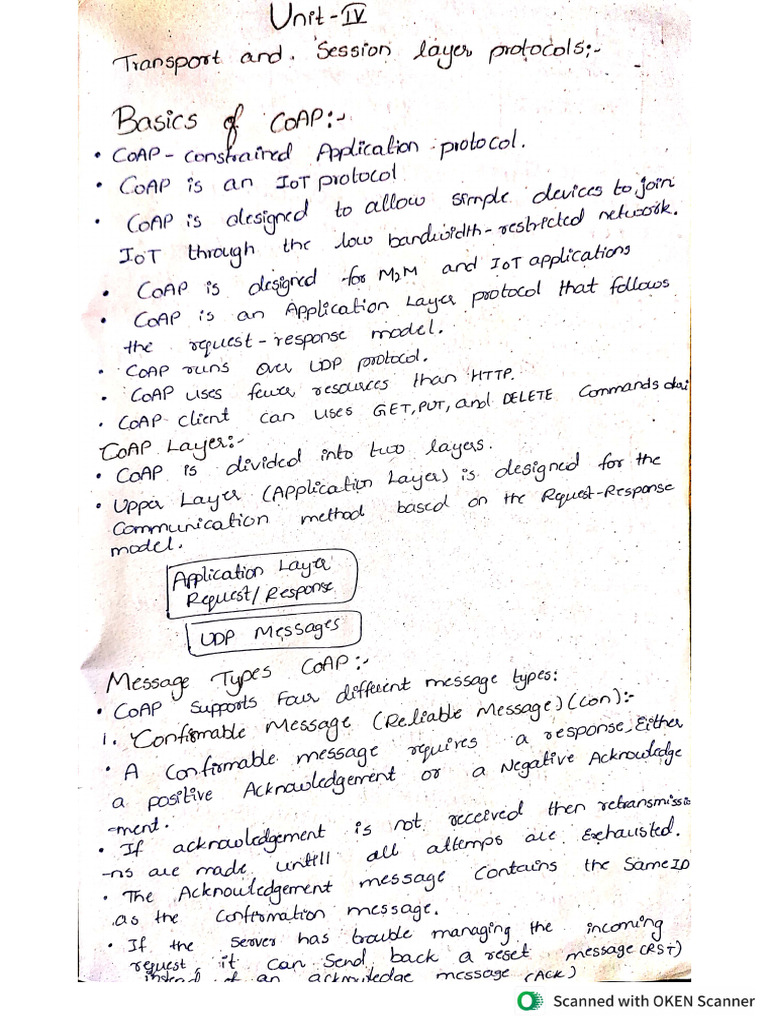 Unit-IV
Transport and. Session layer protocols:-
Basics of COAP:-
• COAP - constrained Application protocol.
• COAP is an IOT protocol
• COAP is designed to allow simple devices to join
IOT through the low bandwidth-restricted network.
• COAP is designed for M2M and IOT applications
• COAP is an Application Layer protocol that follows
the request-response model.
• COAP runs over UDP protocol.
• COAP uses fewer resources than HTTP.
• COAP client can uses GET, PUT, and DELETE Commands
COAP Layer:-
• COAP is divided into two layers.
• Upper Layer (Application Layer) is designed for the
Communication method based on the Request-Response
model.
Application Layer
Request/Response
UDP Messages
Message Types COAP:-
• COAP supports Four different message types:
1. Confirmable Message (Reliable Message) (con):-
• A Confirmable message requires a response, Either
a positive Acknowledgement or a Negative Acknowledge
-ment.
• If acknowledgement is not received then retransmissio
-ns are made untill all attemps are Exhausted.
• The Acknowledgement message contains the Same ID
as the Confirmation message.
• If the server has trouble managing the incoming
request, it can send back a reset message (RST)
instead of an acknowledge message (ACK)
Scanned with OKEN Scanner